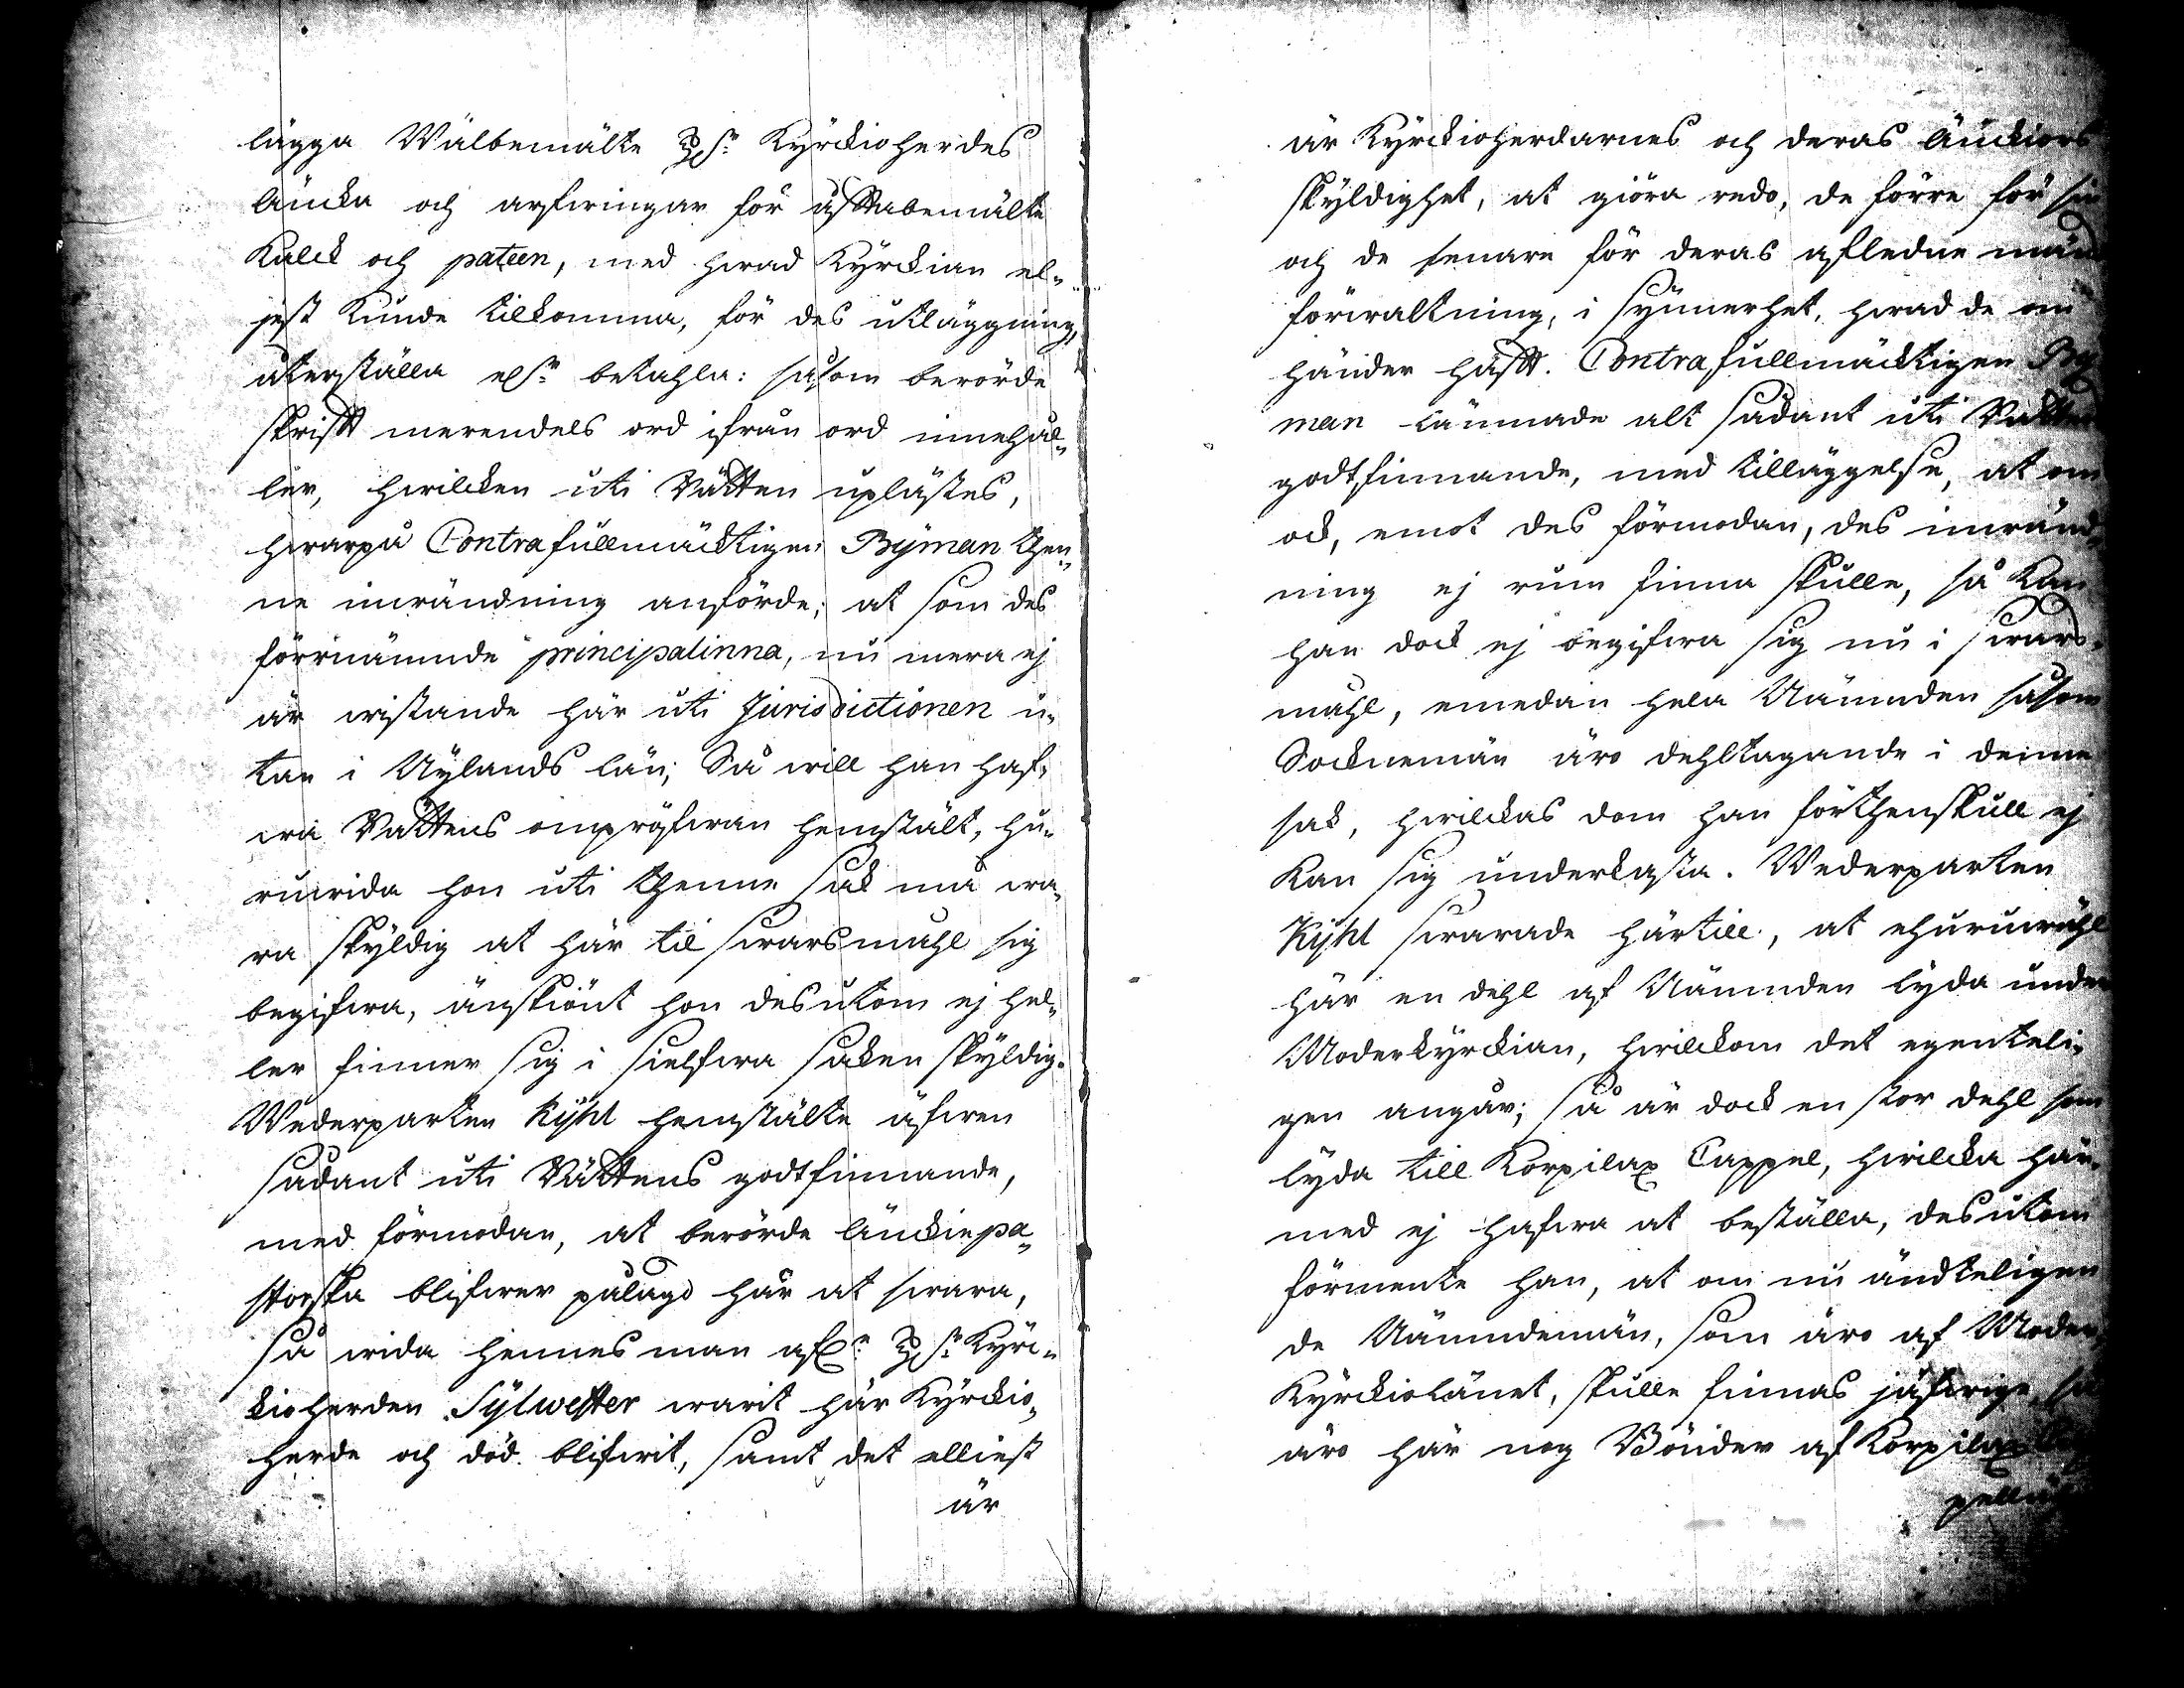 lägga Wälbemälte H:r Kyrckioherdes
äncka och arfwingar för åfftabemälte
Kalck och pateen, med hwad Kyrckian el-
jest kunde tilkomma, för des utläggning,
återställa ell:r betahla: såsom berörde
skrifft merendels ord ifrån ord innehål-
ler, hwilcken uti Rätten uplästes,
hwarpå Contrafullmäcktigen Byman then-
ne inwändning anförde; at som des
förrnämnde principalinna, nu mera ej
är wistande här uti Jurisdictionen u-
tan i Nylands län; Så will han haf-
wa Rättens ompröfwan hemstält, hu-
ruwida hon uti thenne sak må wa-
ra skyldig at här til swarsmahl sig
begifwa, änskiönt hon desutom ej hel-
ler finner sig i sielfwa saken skyldig.
Wederparten Kijhl hemstälte äfwen
sådant uti Rättens godtfinnande,
med förmodan, at berörde änckiepa-
storska blifwer pålagd här at swara,
så wida hennes man afl:e H:r Kyrc-
kioherden Sylwester warit här Kyrckio-
herde och död blifwit, samt det elliest
är
är Kyrckioherdarnes och deras änckiors
skyldighet, at giöra redo, de förre för sin
och de senare för deras afledne mäns
förwaltning, i synnerhet, hwad de om
händer hafft. Contrafullmäcktigen By-
man lämnade alt sådant uti Rättens
godtfinnande, med tilläggelse, at om
ock, emot des förmodan, des inwänd-
ning ej rum finna skulle, så kan
han dock ej begifwa sig nu i swars-
mahl, emedan hela Nämnden såsom
Socknemän äro dehltagande i denne
sak, hwilckas dom han förthenskull ej
kan sig underkasta. Wederparten
Kijhl swarade härtill, at ehuruwähl
här en dehl af Nämnden lyda under
Moderkyrckian, hwilckom det egenteli-
gen angår; så är dock en stor dehl som
lyda till Korpilax Cappel, hwilcka här-
med ej hafwa at beställa, desutom
förmente han, at om nu ändteligen
de Nämndemän, som äro af Moder-
kyrckiolänet, skulle finnas jäfwige, så
äro här nog Bönder af Korpilax